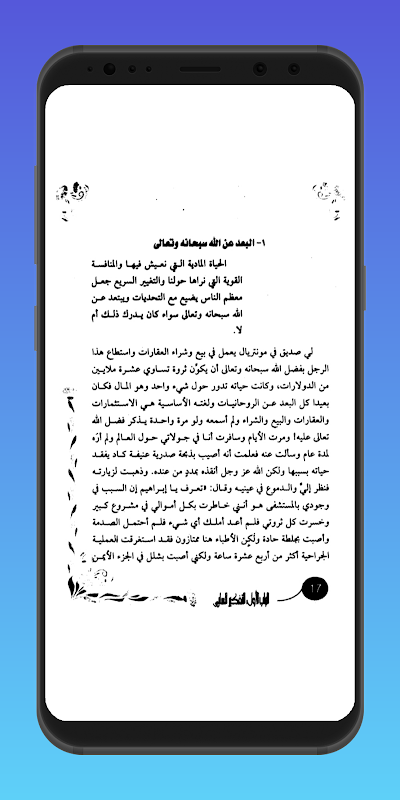 ١- البعد عن الله سبحانه وتعالى
الحياة المادية التي نعيش فيها والمنافسة
القوية التي نراها حولنا والتغيير السريع جعل
معظم الناس يضيع مع التحديات ويبتعد عن
الله سبحانه وتعالى سواء كان يدرك ذلك أم
لا.
لي صديق في مونتريال يعمل في بيع وشراء العقارات واستطاع هذا
الرجل بفضل الله سبحانه وتعالى أن يكوّن ثروة تساوي عشرة ملايين
من الدولارات، وكانت حياته تدور حول شيء واحد وهو المال فكان
بعيدا كل البعد عن الروحانيات ولغته الأساسية هي الاستثمارات
والعقارات والبيع والشراء ولم أسمعه ولو مرة واحدة يذكر فضل الله
تعالى عليه! ومرت الأيام وسافرت أنا في جولاتي حول العالم ولم أره
لمدة عام وسألت عنه فعلمت أنه أصيب بذبحة صدرية عنيفة كاد يفقد
حياته بسببها ولكن الله عز وجل أنقذه بمددٍ من عنده. وذهبت لزيارته
فنظر إليَّ والدموع في عينيه وقال: «تعرف يا إبراهيم إن السبب في
وجودي بالمستشفى هو أنني خاطرت بكل أموالي في مشروع كبير
وخسرت كل ثروتي فلم أعد أملك أي شيء فلم أحتمل الصدمة
وأصبت بجلطة حادة ولكن الأطباء هنا ممتازون فقد استغرقت العملية
الجراحية أكثر من أربع عشرة ساعة ولكني أصبت بشلل في الجزء الأيمن
17
الباب الأول: التفكير السلبي